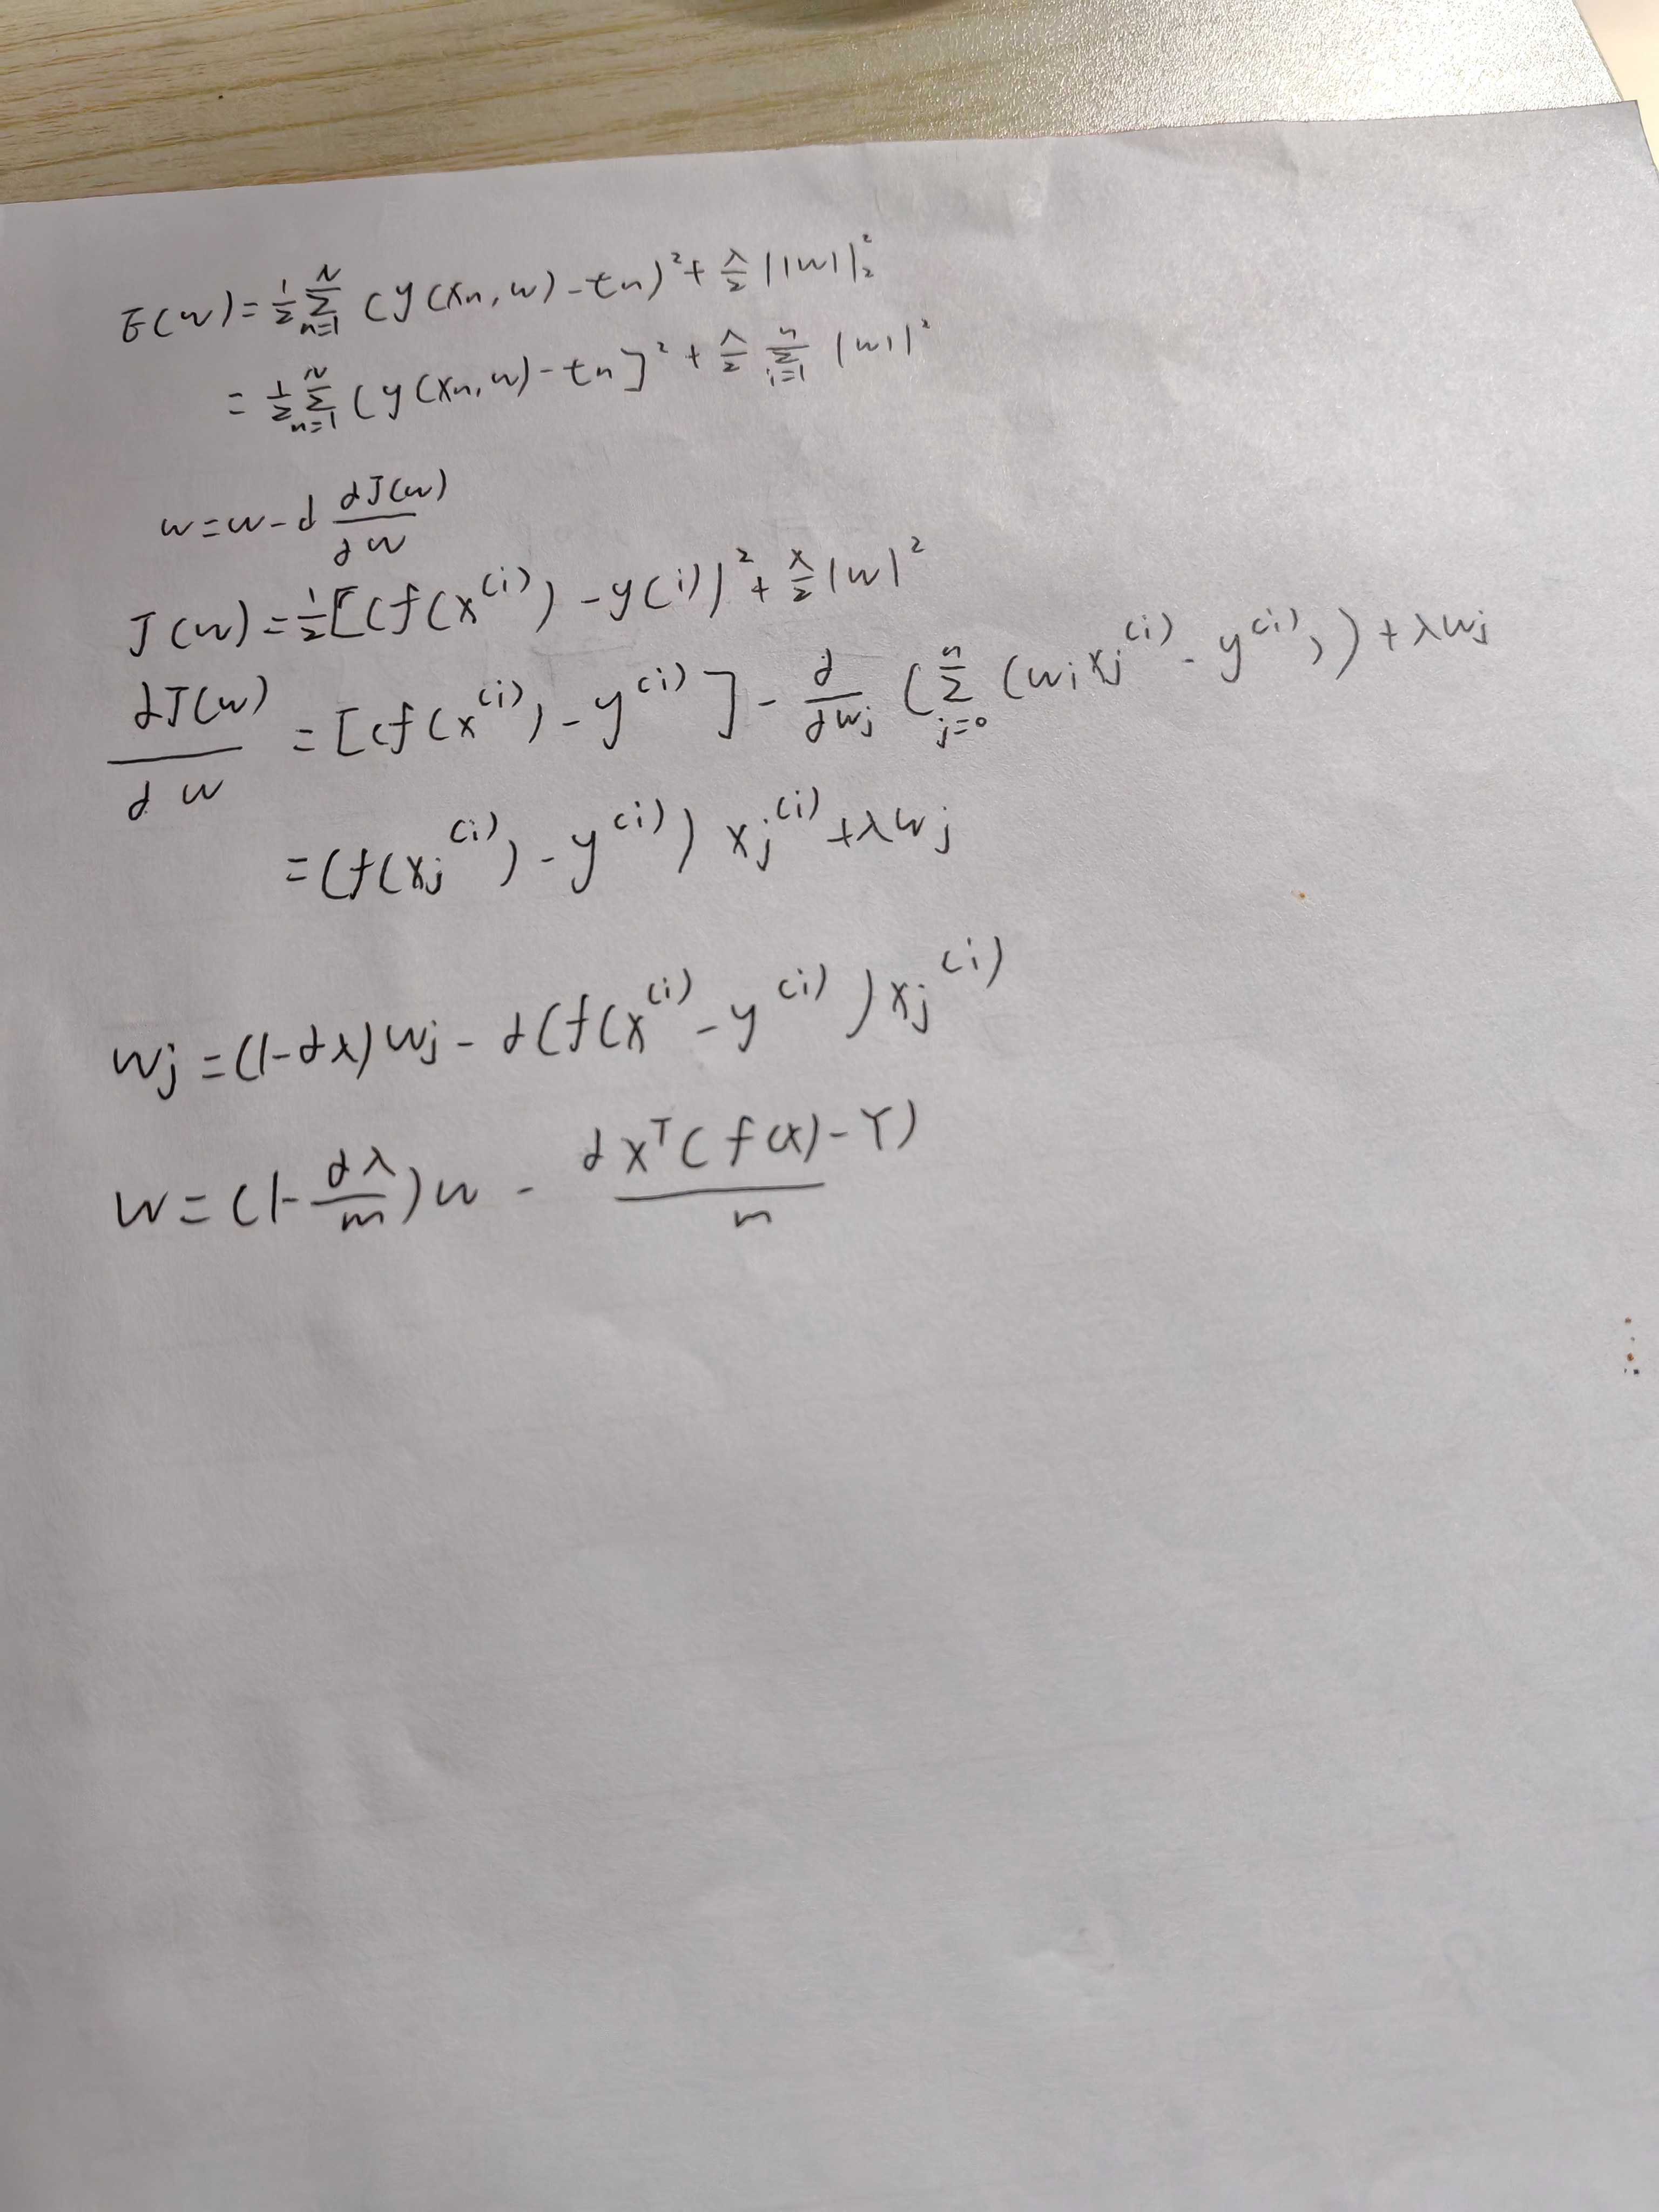 E(w)=½∑_{n=1}^{N}(y(xn,w)-tn)²+λ/2||w||₂²
=½∑_{n=1}^{N}(y(xn,w)-tn]²+λ/2∑_{i=1}^{n}|wi|²
w=w-α ∂J(w)/∂w
J(w)=½[(f(x^{(i)})-y(i))²+λ/2|w|²
∂J(w)/∂w=[(f(x^{(i)})-y^{(i)}]-∂/∂wj(∑_{j=0}^{n}(wixj^{(i)}-y^{(i)}))+λwj
=(f(xj^{(i)})-y^{(i)})xj^{(i)}+λwj
wj=(1-αλ)wj-α(f(x^{(i)}-y^{(i)})xj^{(i)}
w=(1-αλ/m)w-αx^T(f(x)-Y)/m